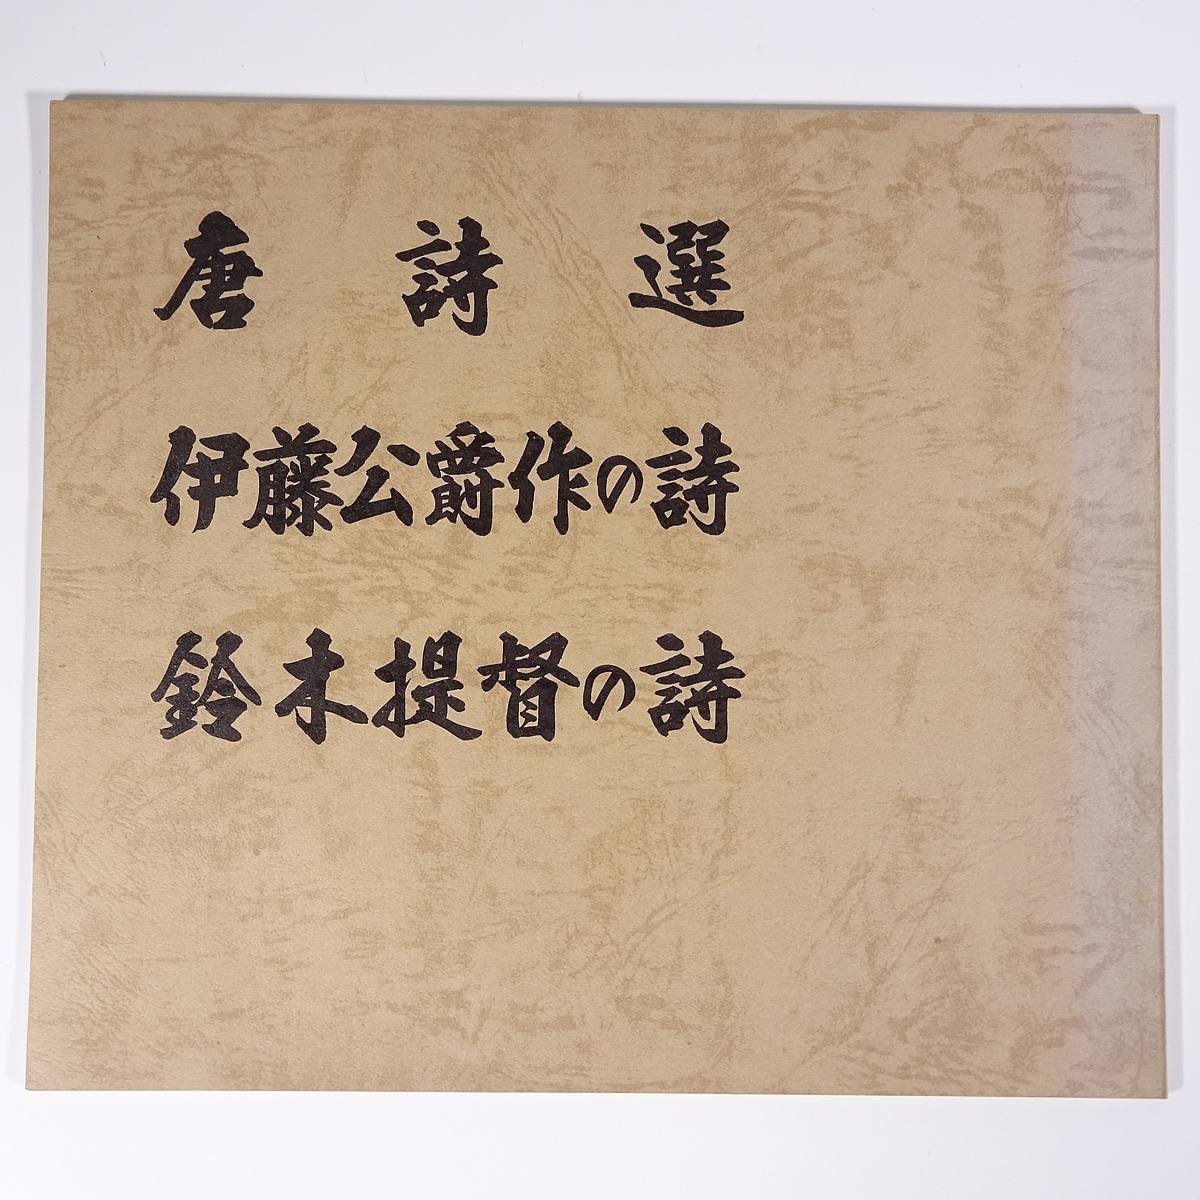 唐詩選
伊藤公爵作の詩
鈴木提督の詩